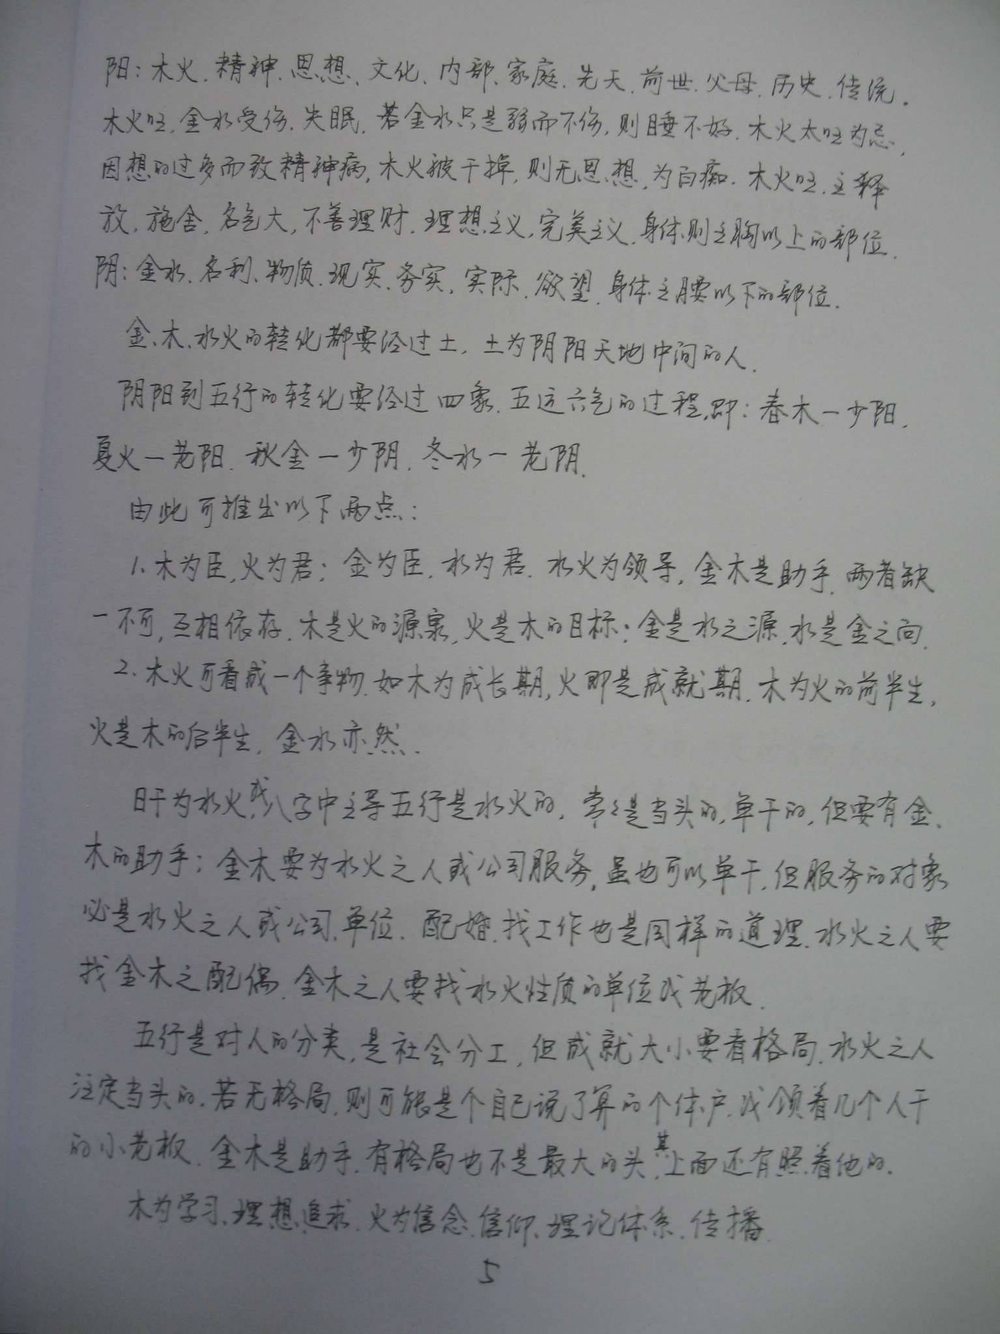 阳：木火、精神、思想、文化、内部、家庭、先天、前世、父母、历史、传统。
木火旺，金水受伤，失眠，若金水只是弱而不伤，则睡不好，木火太旺为忌，
因想的过多而致精神病，木火被干掉，则无思想，为白痴。木火旺，主释
放，施舍，名气大，不善理财，理想主义，完美主义，身体则主胸以上的部位。
阴：金水、名利、物质、现实、务实、实际、欲望，身体主腰以下的部位。
金、木、水火的转化都要经过土，土为阴阳天地中间的人。
阴阳到五行的转化要经过四象、五运六气的过程，即：春木一少阳，
夏火一老阳，秋金一少阴，冬水一老阴。
由此可推出以下两点：
1、木为臣，火为君；金为臣，水为君。水火为领导，金木是助手，两者缺
一不可，互相依存，木是火的源泉，火是木的目标；金是水之源，水是金之向。
2、木火可看成一个事物，如木为成长期，火即是成就期，木为火的前半生，
火是木的后半生，金水亦然。
日干为水火，或八字中主导五行是水火的，常常是当头的，单干的，但要有金、
木的助手；金木要为水火之人或公司服务，虽也可以单干，但服务的对象
必是水火之人或公司、单位。配婚、找工作也是同样的道理，水火之人要
找金木之配偶，金木之人要找水火性质的单位或老板。
五行是对人的分类，是社会分工，但成就大小要看格局，水火之人
注定当头的，若无格局，则可能是个自己说了算的个体户，或领着几个人干
的小老板，金木是助手，有格局也不是最大的头，其上面还有照着他的。
木为学习、理想、追求，火为信念、信仰、理论体系、传播。
5